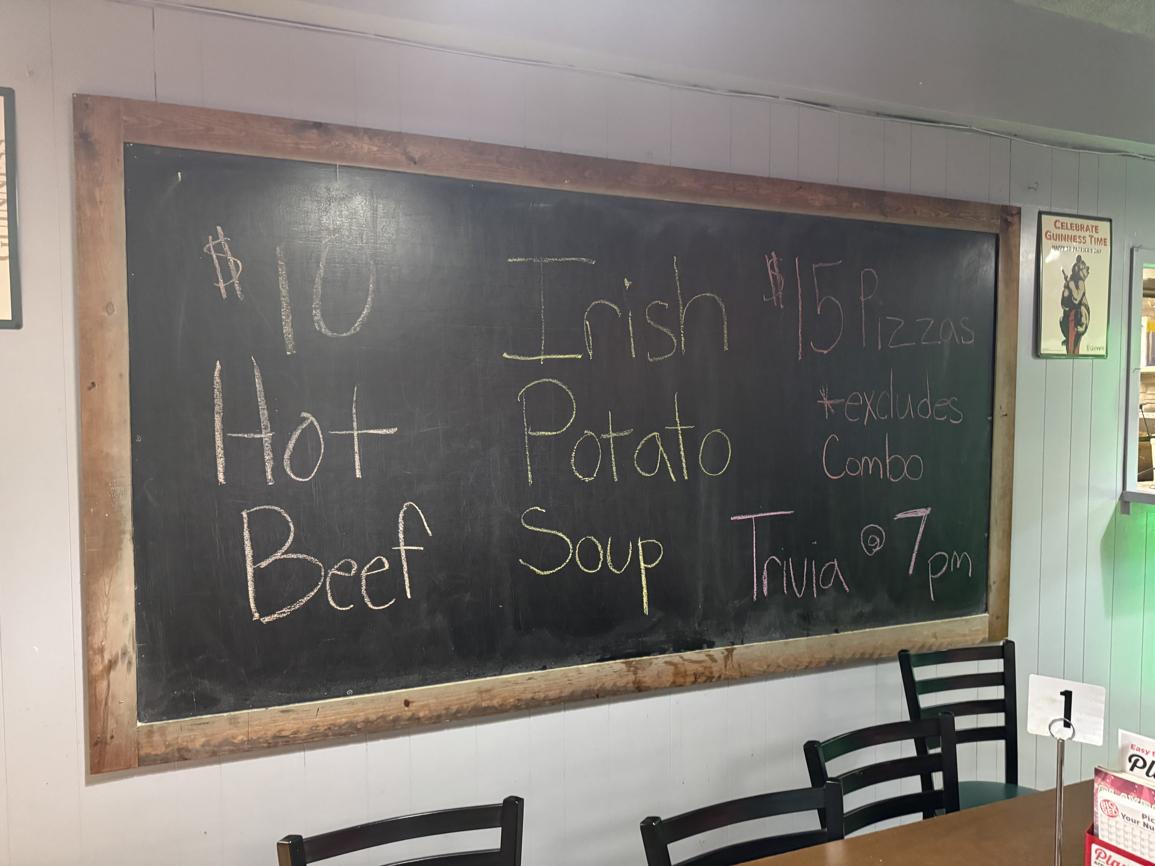 $10
Hot
Beef
Irish
Potato
Soup
$15 Pizzas
*excludes
Combo
Trivia @ 7pm
CELEBRATE
GUINNESS TIME
1